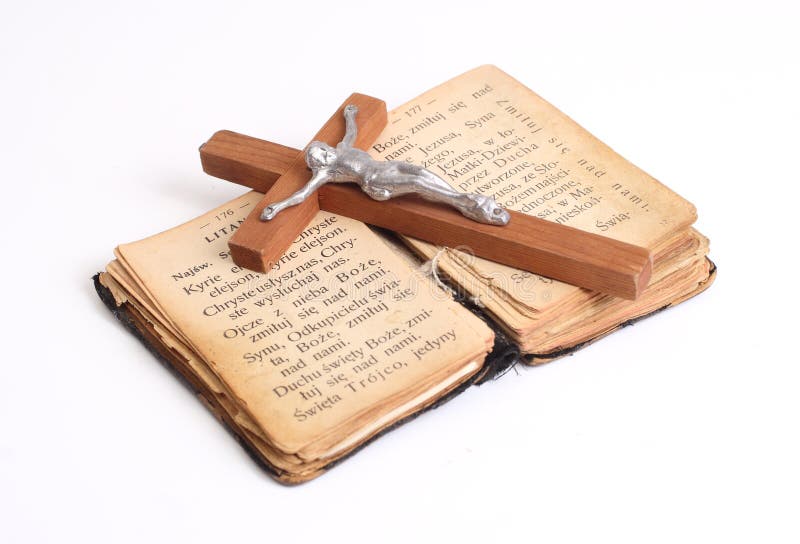 — 176 —
LITAN
Najśw. S
Kyrie elejson, Chryste
elejson, Kyrie elejson.
Chryste usłysz nas, Chry-
ste wysłuchaj nas.
Ojcze z nieba Boże,
zmiłuj się nad nami.
Synu, Odkupicielu świa-
ta, Boże, zmiłuj się
nad nami.
Duchu święty Boże, zmi-
łuj się nad nami.
Święta Trójco, jedyny
— 177 —
Boże, zmiłuj się nad
nami.
Jezusa, Syna
żego,
Zmiłuj się nad nami.
Jezusa, w ło-
Matki-Dziewi-
przez Ducha
utworzone,
Jezusa, ze Sło-
Bożem najści-
ednoczone,
sa, w Ma-
nieskoń-
Świą-
Se